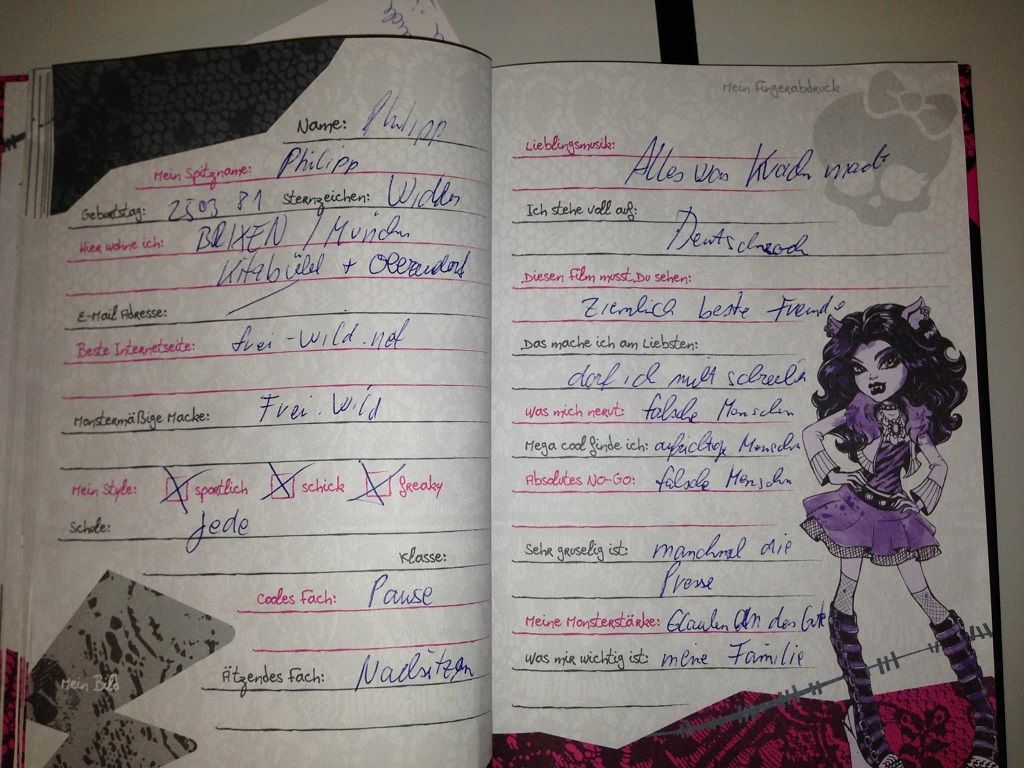 Name: Philipp
Mein Spitzname: Philipp
Geburtstag: 25 03 81 Sternzeichen: Widder
Hier wohne ich: BRIXEN / München
Kitzbühel + Oberndorf
E-Mail Adresse:
Beste Internetseite: frei-wild.net
Monstermäßige Macke: Frei.Wild
Mein Style: sportlich schick freaky
Schule: Jede
Klasse:
Cooles Fach: Pause
Ätzendes Fach: Nachsitzen
Mein Bild
Mein Fingerabdruck
Lieblingsmusik: Alles was Krach macht
Ich stehe voll auf: Deutschrock
Diesen Film musst Du sehen:
Ziemlich beste Freunde
Das mache ich am Liebsten:
darf ich nicht schreiben
Was mich nervt: falsche Menschen
Mega cool finde ich: aufrichtige Menschen
Absolutes No-Go: falsche Menschen
Sehr gruselig ist: manchmal die
Presse
Meine Monsterstärke: Glauben an das Gute
Was mir wichtig ist: meine Familie